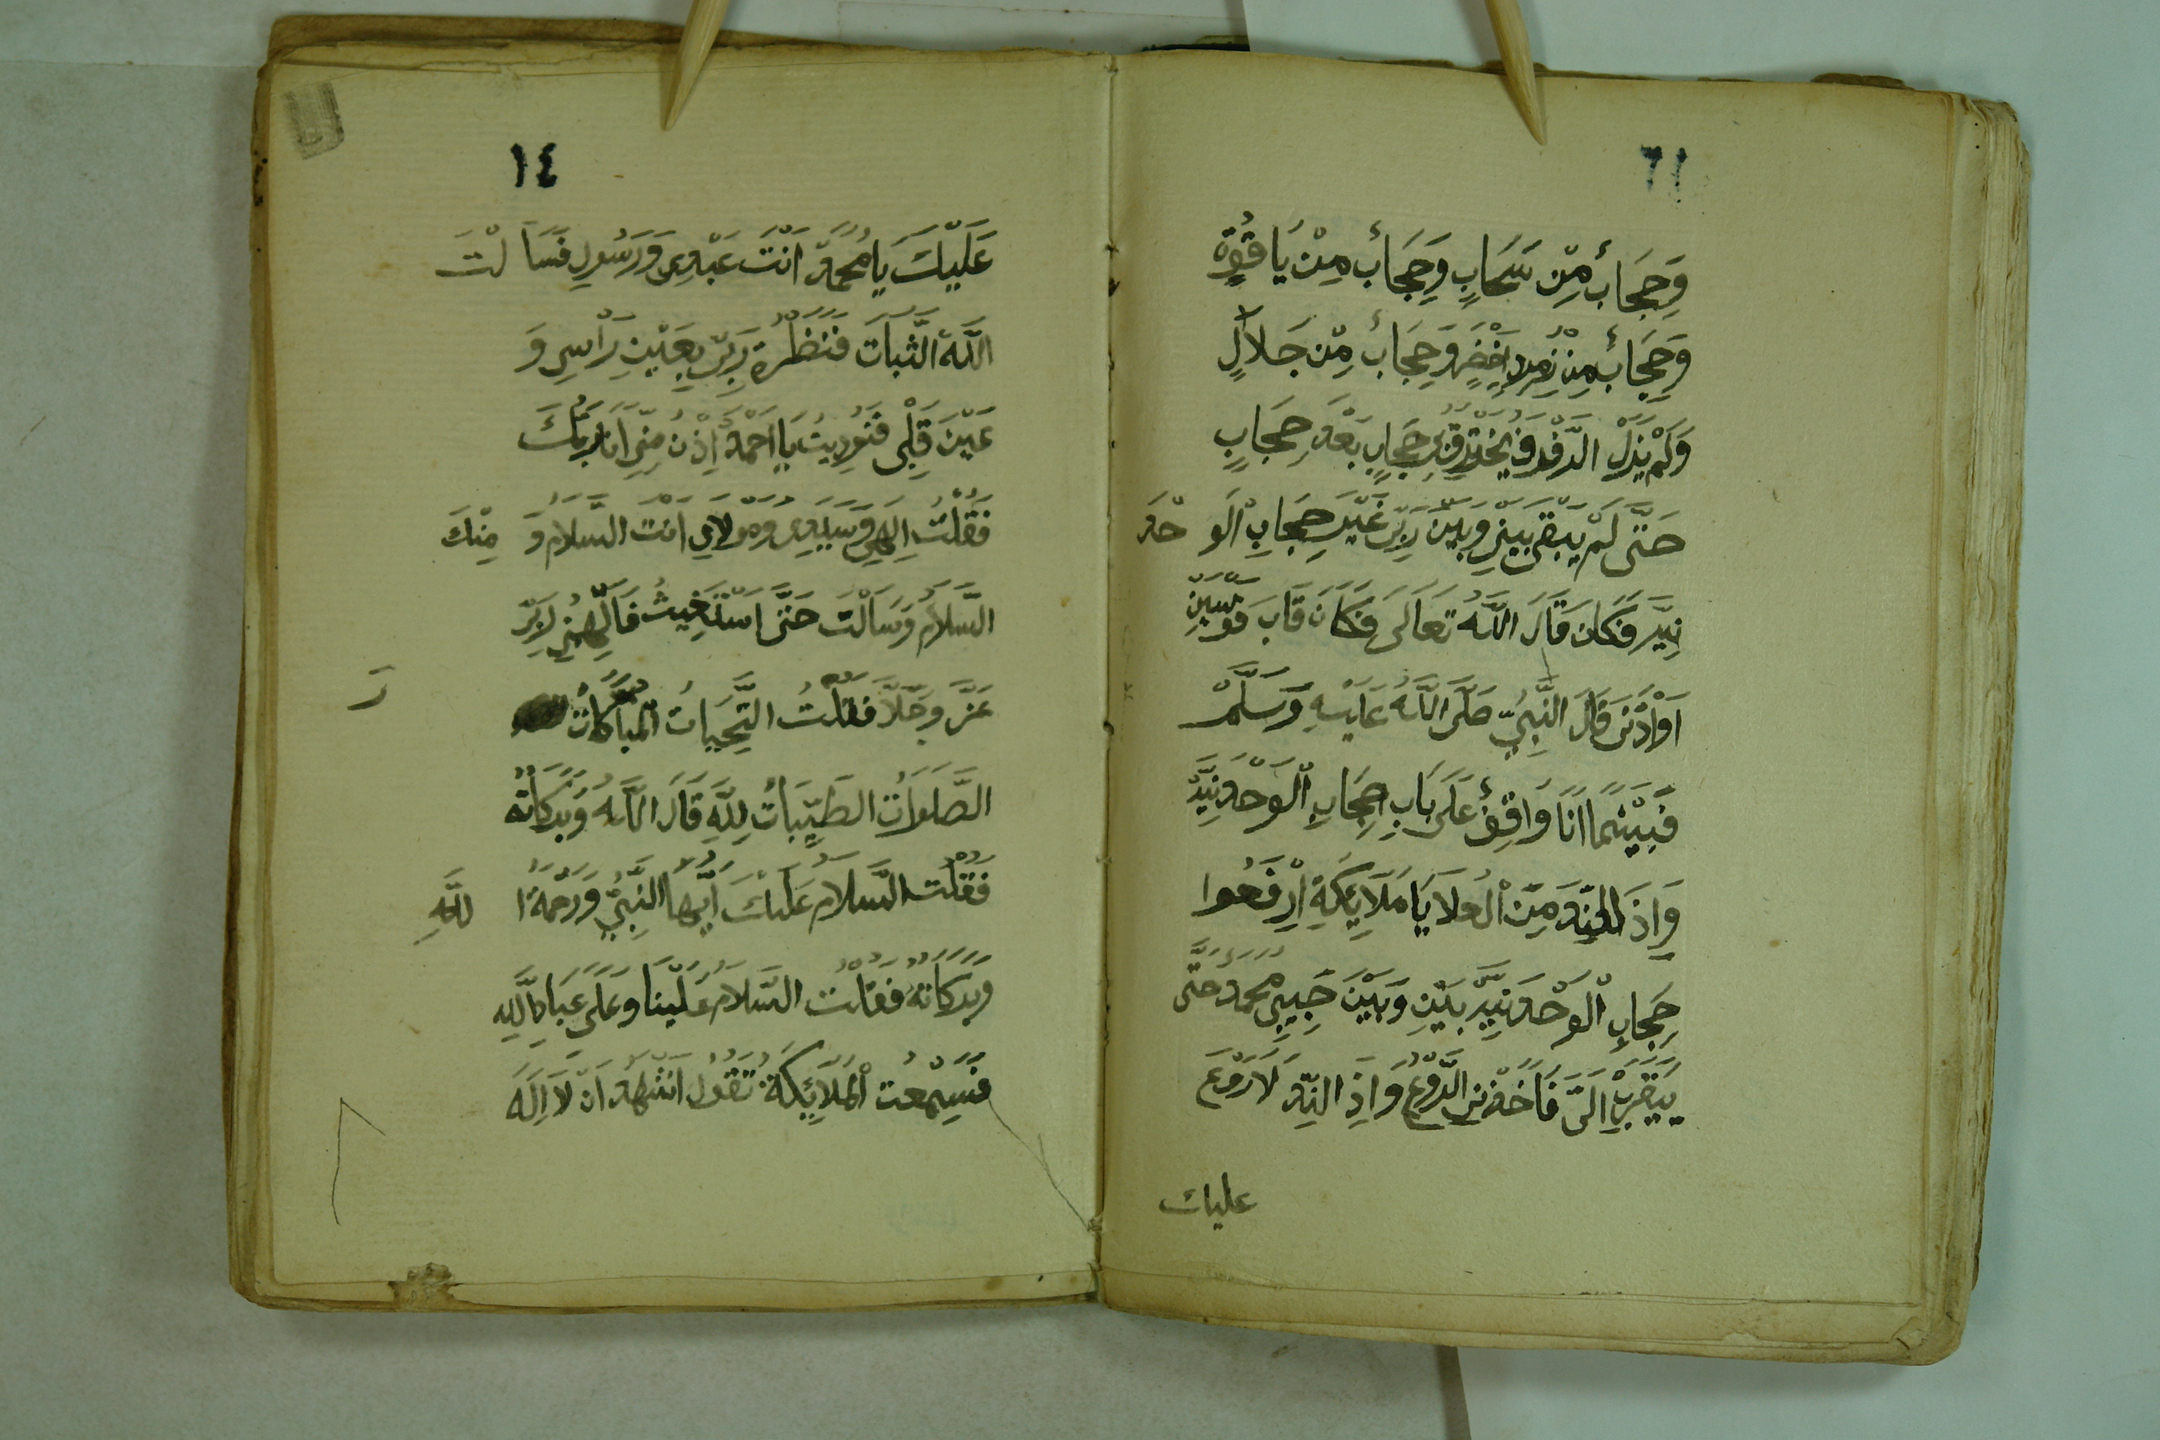 ٦١
وَحِجَابٌ مِّنْ سَحَابٍ وَحِجَابٌ مِنْ يَاقُوتٍ
وَحِجَابٌ مِنْ زُمُرُدٍ اَخْضَرٍ وَحِجَابٌ مِّنْ جَلَالٍ
وَلَمْ يَزَلْ الرَّفْرَفُ يَخْتَرِقُ بِي حِجَابٍ بَعْدَ حِجَابٍ
حَتَّى لَمْ يَبْقَى بَيْنِي وَبَيْنَ رَبِّي غَيْرَ حِجَابِ الْوَحْدَ
نِيَّه فَكَانَ قَالَ اللهُ تَعَالَى فَكَانَ قَابَ قَوْسَيْنِ
اَوْ اَدْنَى قَالَ النَّبِيُّ صَلَّى اللهُ عَلَيْهِ وَسَلَّمَ
فَبَيْنَمَا اَنَا وَاقِفٌ عَلَى بَابِ حِجَابِ الْوَحْدَنِيَّه
وَاِذَ النِّدَ مِنَ الْعُلَا يَا مَلَايِكَةِ اِرْفَعُوا
حِجَابِ الْوَحْدَنِيَّه بَيْنِي وَبَيْنَ حَبِيبِي مُحَمَّد حَتَّى
يَتَقَرَّبْ اِلَيَّ فَاَخَذَنِي الرَّوْعُ وَاِذِ النِّدَ لَا رَوْعَ
عليك
١٤
عَلَيْكَ يَا مُحَمَّدْ اَنْتَ عَبْدِى وَرَسُولِي فَسَاَلْتَ
اللهَ الثَّبَاتَ فَنَظَرْتُ رَبِّي بِعَيْنِ رَاْسِي وَ
عَيْنَ قَلْبِى فَنُودِيتُ يَا اَحْمَدْ اِدْنُ مِنِّي اَنَا رَبُّكَ
فَقُلْتُ اِلَهِي وَسَيِّدِى وَمَوْلَايِ اَنْتَ السَّلَامُ وَمِنْكَ
السَّلَامُ وَسَاَلْتَ حَتَّى اسْتَغِيثُ فَالْهَمَنِي رَبِّي
عَزَّ وَجَلَّا فَقُلْتُ التَّحِيَاتُ الْمُبَارَكَاتُ
الصَّلَوَاتُ الطَّيِّبَاتُ لِلَّهِ قَالَ اللهُ وَبَرَكَاتُهُ
فَقُلْتُ السَّلَامُ عَلَيْكَ اَيُّهَا النَّبِيُّ وَرَحْمَةُ اللَّهِ
وَبَرَكَاتُهُ فَقُلْتُ السَّلَامُ عَلَيْنَا وَعَلَى عِبَادِ اللَّهِ
فَسَمِعْتُ الْمَلَائِكَةُ تَقُولُ اَشْهَدُ اَنْ لَا اِلَهَ